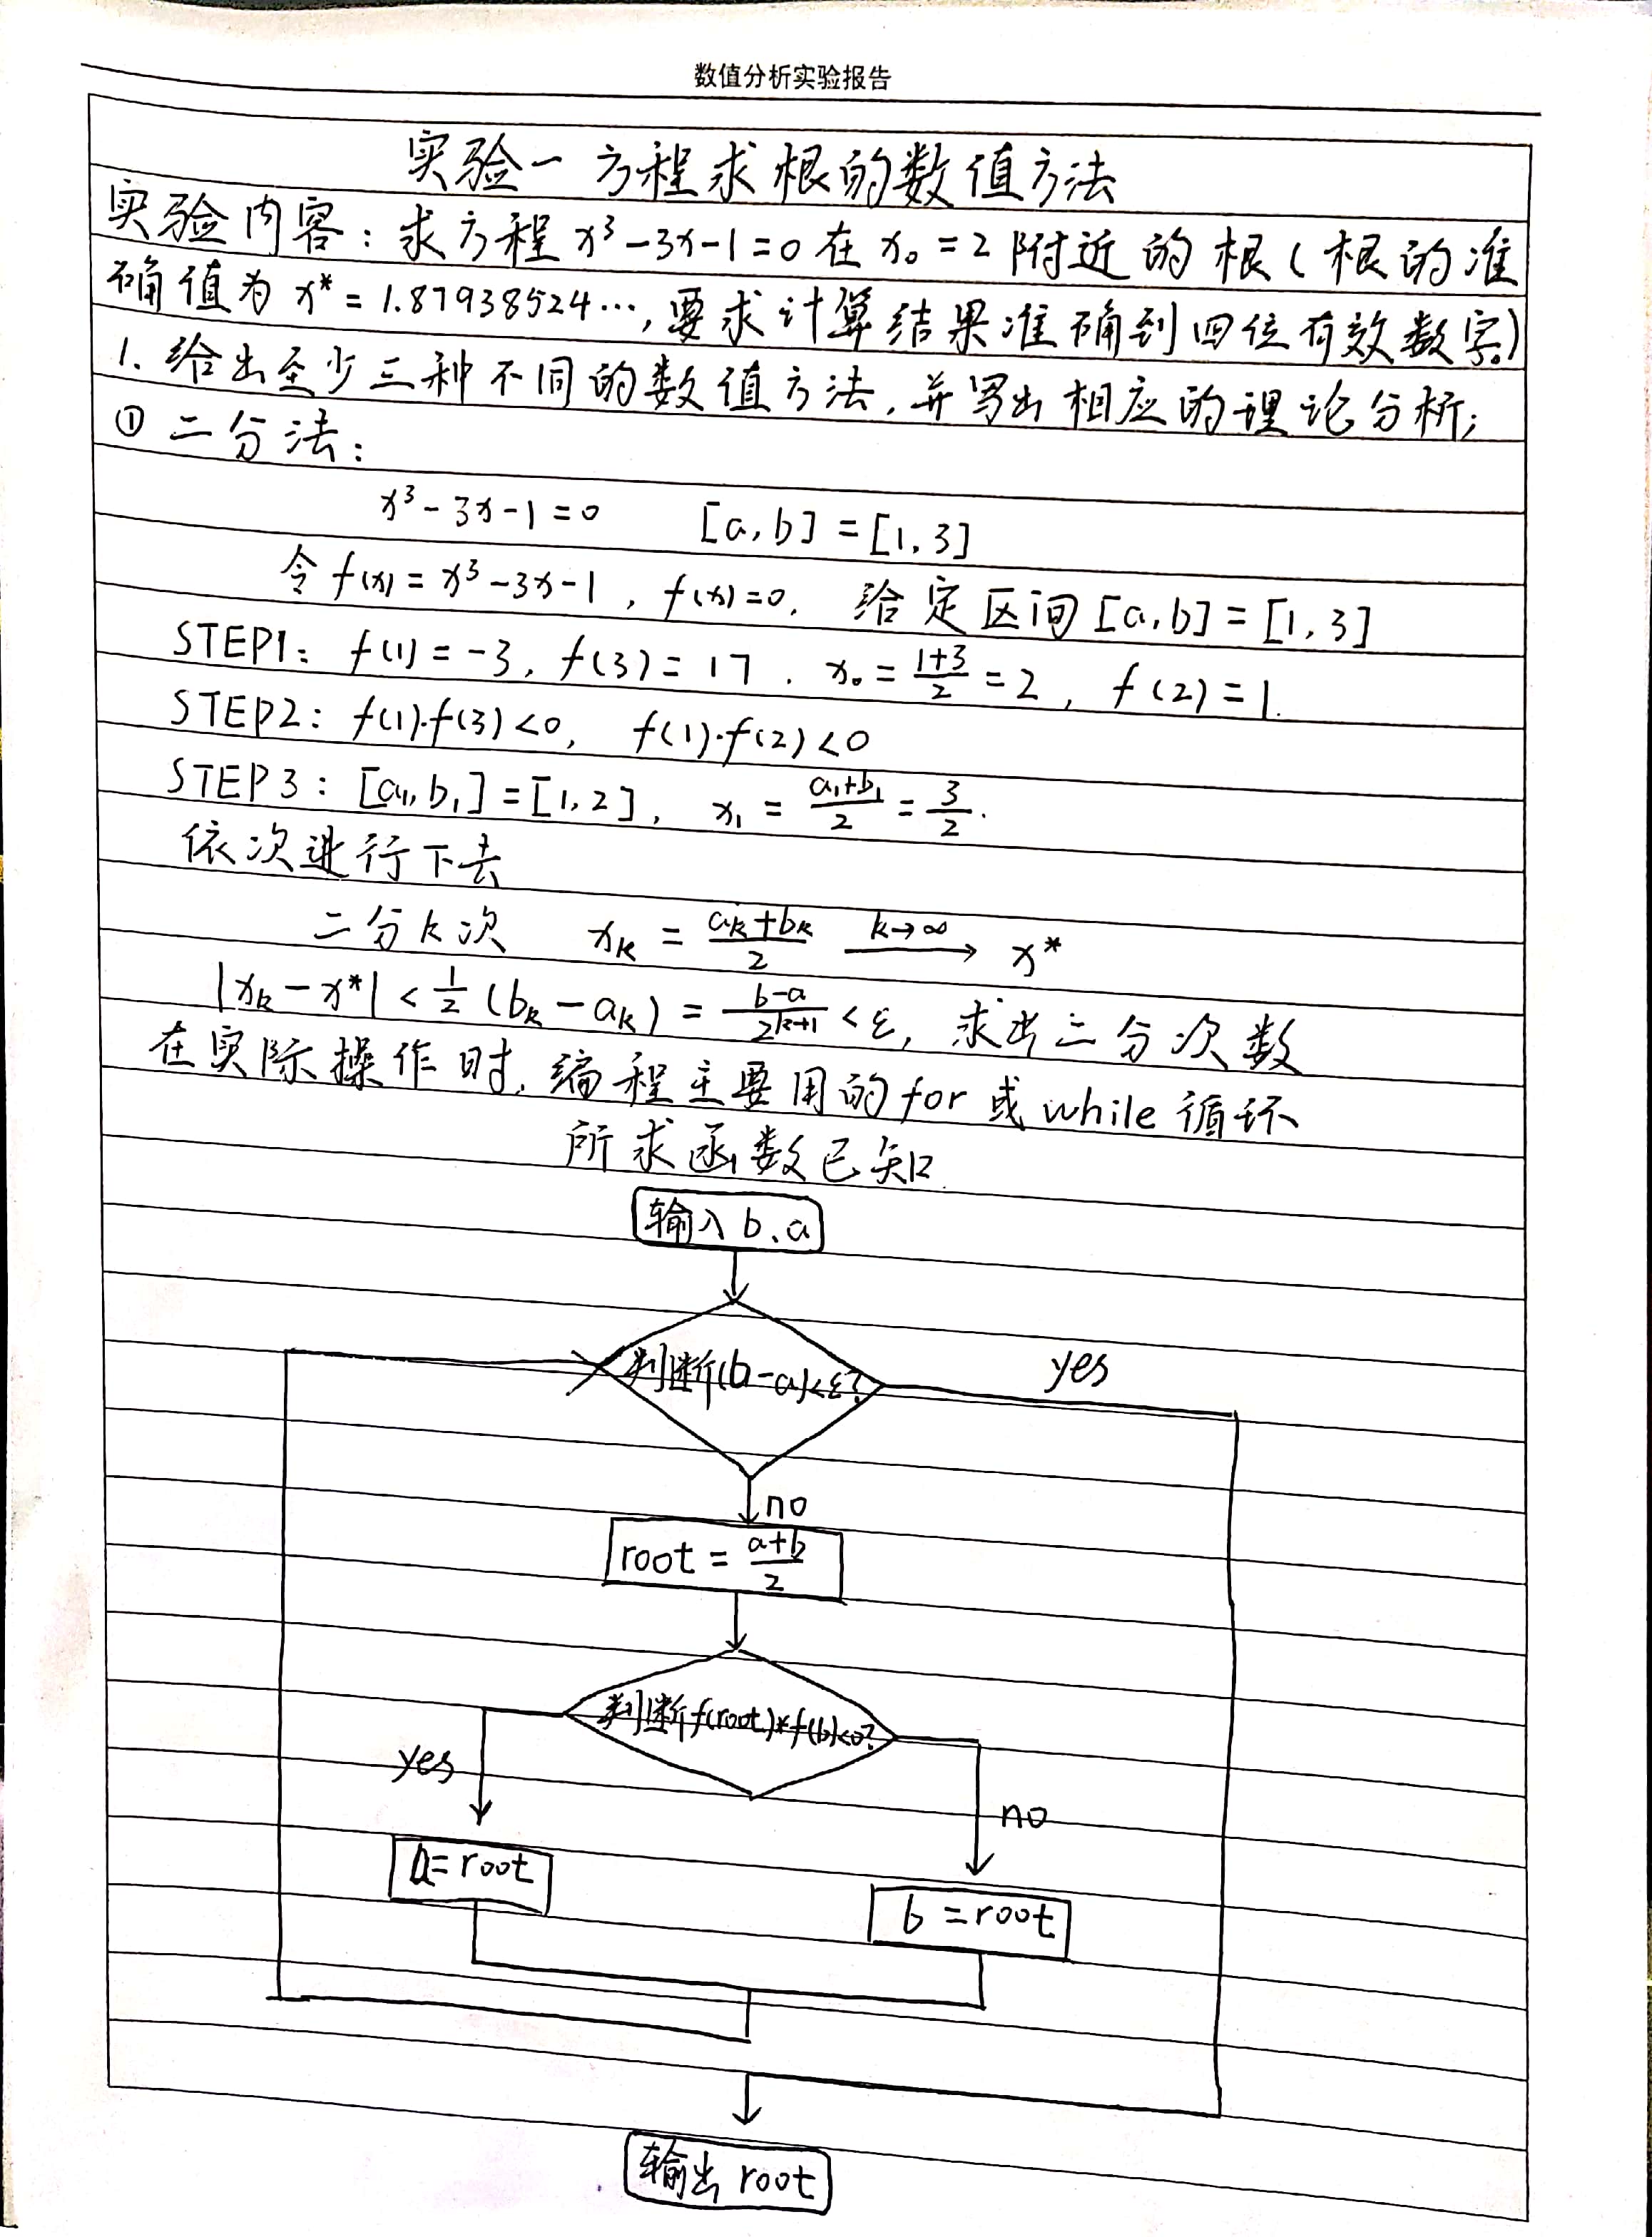 数值分析实验报告
实验一 方程求根的数值方法
实验内容：求方程 x³-3x-1=0 在 x₀=2 附近的根（根的准
确值为 x*=1.87938524…，要求计算结果准确到四位有效数字。）
1. 给出至少三种不同的数值方法，并写出相应的理论分析；
① 二分法：
x³-3x-1=0 [a,b]=[1,3]
令 f(x)=x³-3x-1，f(x)=0， 给定区间[a,b]=[1,3]
STEP1: f(1)=-3, f(3)=17. x₀=(1+3)/2=2, f(2)=1.
STEP2: f(1)·f(3)<0, f(1)·f(2)<0
STEP3: [a₁,b₁]=[1,2], x₁=(a₁+b₁)/2=3/2.
依次进行下去
二分k次 xₖ=(aₖ+bₖ)/2 —k→∞→ x*
|xₖ-x*|<1/2(bₖ-aₖ)=(b-a)/2^(k+1)<ε，求出二分次数
在实际操作时，编程主要用的for或while循环
所求函数已知
输入 b、a
判断(b-a)<ε?
yes
no
root=(a+b)/2
判断f(root)*f(b)<0?
yes
no
a=root
b=root
输出 root